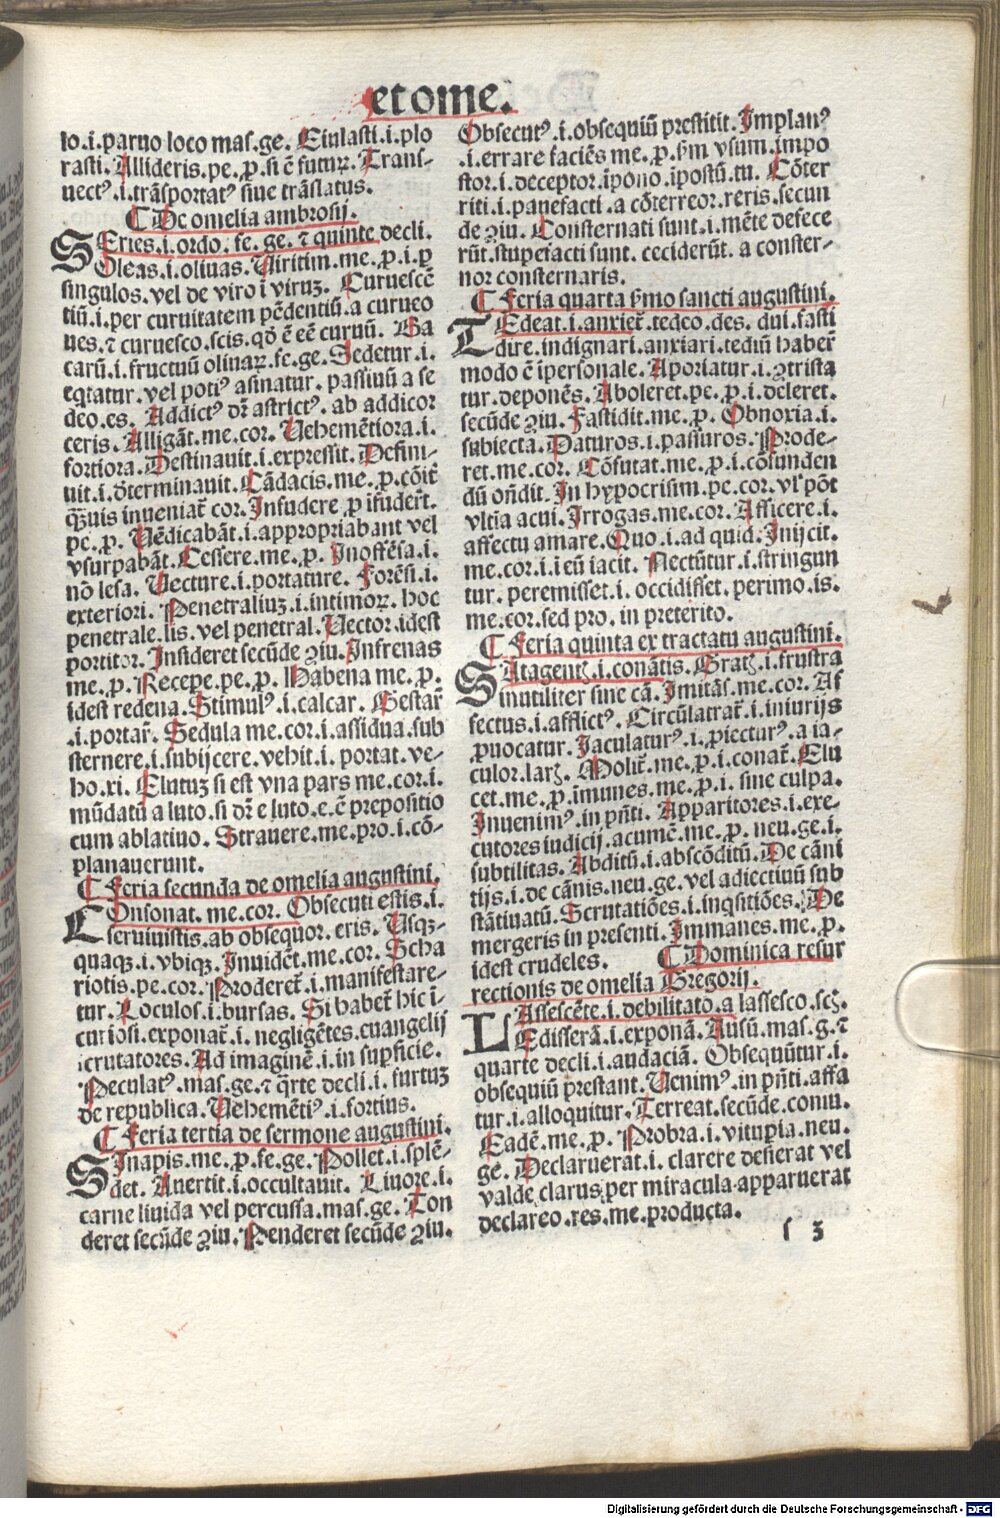 et ome.
lo.i.paruo loco mas.ge. Eiulasti.i.plo
rasti. Allideris.pe.ꝓ.si ē futuꝝ. Trans⸗
uectꝰ.i.trāsportatꝰ siue trāslatus.
¶ De omelia ambrosij.
SEries.i.ordo.fe.ge.⁊ quinte decli.
Oleas.i.oliuas. Uiritim.me.ꝓ.i.ꝑ
singulos.vel de viro ī viruꝫ. Curuescē
tiū.i.per curuitatem pēdentiū.a curueo
ues.⁊ curuesco.scis.qđ ē eē curuū. Ba
carū.i.fructuū oliuaꝝ.fe.ge. Sedetur.i.
eqtatur.vel potiꝰ asinatur.passiuū a se
deo.es. Addictꝰ dr̄ astrictꝰ.ab addicor
ceris. Alligāt.me.cor. Uehemētiora.i.
fortiora. Destinauit.i.expressit. Defini⸗
uit.i.determinauit. Cādacis.me.ꝓ.cōiter
q̄uis inueniat̄ cor. Infudere ꝓ ifudert̄.
pe.ꝓ. Uēdicabāt.i.appropriabant vel
vsurpabāt. Cessere.me.ꝓ. Inoffēsa.i.
nō lesa. Uecture.i.portature. Forēsi.i.
exteriori. Penetraliuꝫ.i.intimoꝝ. hoc
penetrale.lis.vel penetral. Uector.idest
portitor. Insideret secūde ꝯiu. Infrenas
me.ꝓ. Recepe.pe.ꝓ. Habena me.ꝓ.
idest redena. Stimulꝰ.i.calcar. Gestar̄
.i.portar̄. Sedula me.cor.i.assidua.sub
sternere.i.subijcere.vehit.i.portat.ve⸗
ho.xi. Elutuꝫ si est vna pars me.cor.i.
mūdatū a luto.si dr̄ e luto.e.ē prepositio
cum ablatiuo. Strauere.me.pro.i.cō⸗
planauerunt.
¶ Feria secunda de omelia augustini.
COnsonat.me.cor. Obsecuti estis.i.
seruiuistis.ab obsequor.eris. Usqꝫ⸗
quaqꝫ.i.vbiqꝫ. Inuidēt.me.cor. Scha
riotis.pe.cor. Proderet̄.i.manifestare⸗
tur. Loculos.i.bursas. Si habet̄ hic i⸗
curiosi.exponat̄.i.negligētes.euangelij
scrutatores. Ad imaginē.i.in supficie.
Peculatꝰ.mas.ge.⁊ q̄rte decli.i.furtuꝫ
de republica. Uehemētiꝰ.i.fortius.
¶ Feria tertia de sermone augustini.
SInapis.me.ꝓ.fe.ge. Pollet.i.splē⸗
det. Auertit.i.occultauit. Liuore.i.
carne liuida vel percussa.mas.ge. Ton
deret secūde ꝯiu. Penderet secūde ꝯiu.
Obsecutꝰ.i.obsequiū prestitit. Implanꝰ
.i.errare faciēs me.ꝓ.ẜm vsum.impo
stor.i.deceptor.īpono.ipostū.tu. Cōter
riti.i.pauefacti.a cōterreor.reris.secun
de ꝯiu. Consternati sunt.i.mēte defece
rūt.stupefacti sunt.ceciderūt.a conster⸗
nor consternaris.
¶ Feria quarta ṗmo sancti augustini.
TEdeat.i.anxiet̄.tedeo.des.dui.fasti
dire.indignari.anxiari.tediū haber̄
modo ē īpersonale. Aporiatur.i.ꝯtrista
tur.deponēs. Aboleret.pe.ꝓ.i.deleret.
secūde ꝯiu. Fastidit.me.ꝓ. Obnoxia.i.
subiecta. Paturos.i.passuros. Prode⸗
ret.me.cor. Cōfutat.me.ꝓ.i.cōfunden
dū ondit. In hypocrisim.pe.cor.vl' pōt
vltīa acui. Irrogas.me.cor. Afficere.i.
affectu amare. Quo.i.ad quid. Inijcit.
me.cor.i.i eū iacit. Nectūtur.i.stringun
tur. peremisset.i.occidisset. perimo.is.
me.cor.sed pro.in preterito.
¶ Feria quinta ex tractatu augustini.
SAtagentꝫ.i.conātis. Gratꝫ.i.frustra
inutiliter sine cā. Imitās.me.cor. Af
fectus.i.afflictꝰ. Circūlatrat̄.i.iniurijs
ꝓuocatur. Iaculaturꝰ.i.ꝓiecturꝰ.a ia⸗
culor.larꝫ. Molit̄.me.ꝓ.i.conat̄. Elu
cet.me.ꝓ. īmunes.me.ꝓ.i. sine culpa.
Inuenimꝰ.in pn̄ti. Apparitores.i.exe⸗
cutores iudicij.acumē.me.ꝓ.neu.ge.i.
subtilitas. Abditū.i.abscōditū. De cāni
tijs.i.de cānis.neu.ge.vel adiectiuū sub
stātiuatū. Scrutatiōes.i.inqsitiōes. De
mergeris in presenti. Immanes.me.ꝓ.
idest crudeles. ¶ Dominica resur
rectionis de omelia Gregorij.
LAssescēte.i.debilitato.a lassesco.scꝫ.
Edisserā.i.exponā. Ausū.mas.g.⁊
quarte decli.i.audaciā. Obsequūtur.i.
obsequiū prestant. Uenimꝰ.in pn̄ti.affa
tur.i.alloquitur. Terreat.secūde.coniu.
Eadē.me.ꝓ. Probra.i.vitupia.neu.
ge. Declaruerāt.i. clarere desierat vel
valde clarus per miracula apparuerat
declareo.res.me.producta.
s 3
Digitalisierung gefördert durch die Deutsche Forschungsgemeinschaft - DFG